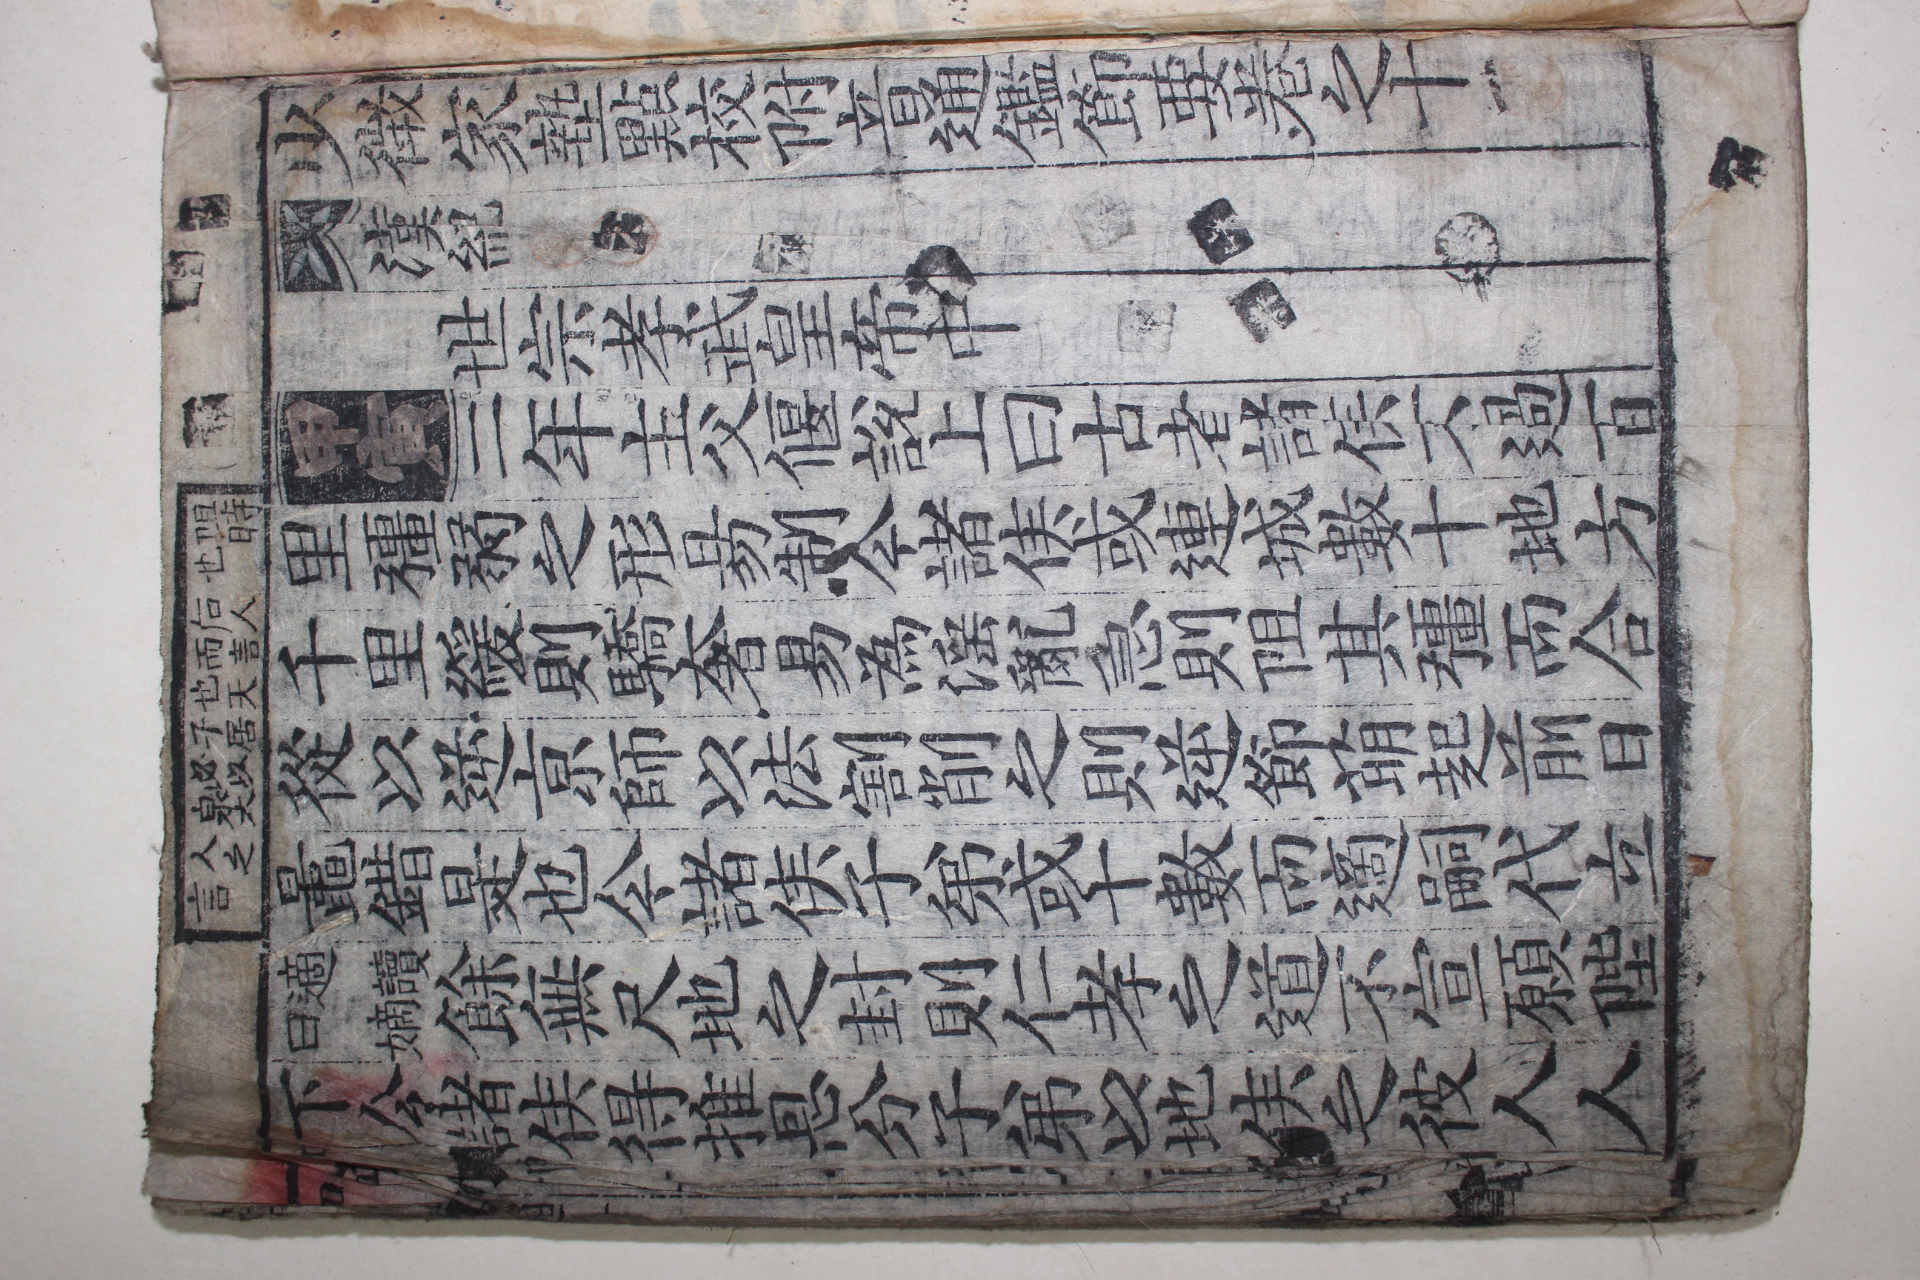 少微家塾點校附音通鑑節要卷之十一
漢紀
世宗孝武皇帝中
甲寅二年主父偃說上曰古者諸侯不過百
里彊弱之形易制今諸侯或連城數十地方
千里緩則驕奢易為淫亂急則阻其彊而合
從以逆京師以法割削之則逆節萌起前日
鼂錯是也今諸侯子弟或十數而適嗣代立
適讀
曰嫡
餘無尺地之封則仁孝之道不宣願陛
下令諸侯得推恩分子弟以地侯之彼人人
也
人
而言
也天
子居
必以
人之
言